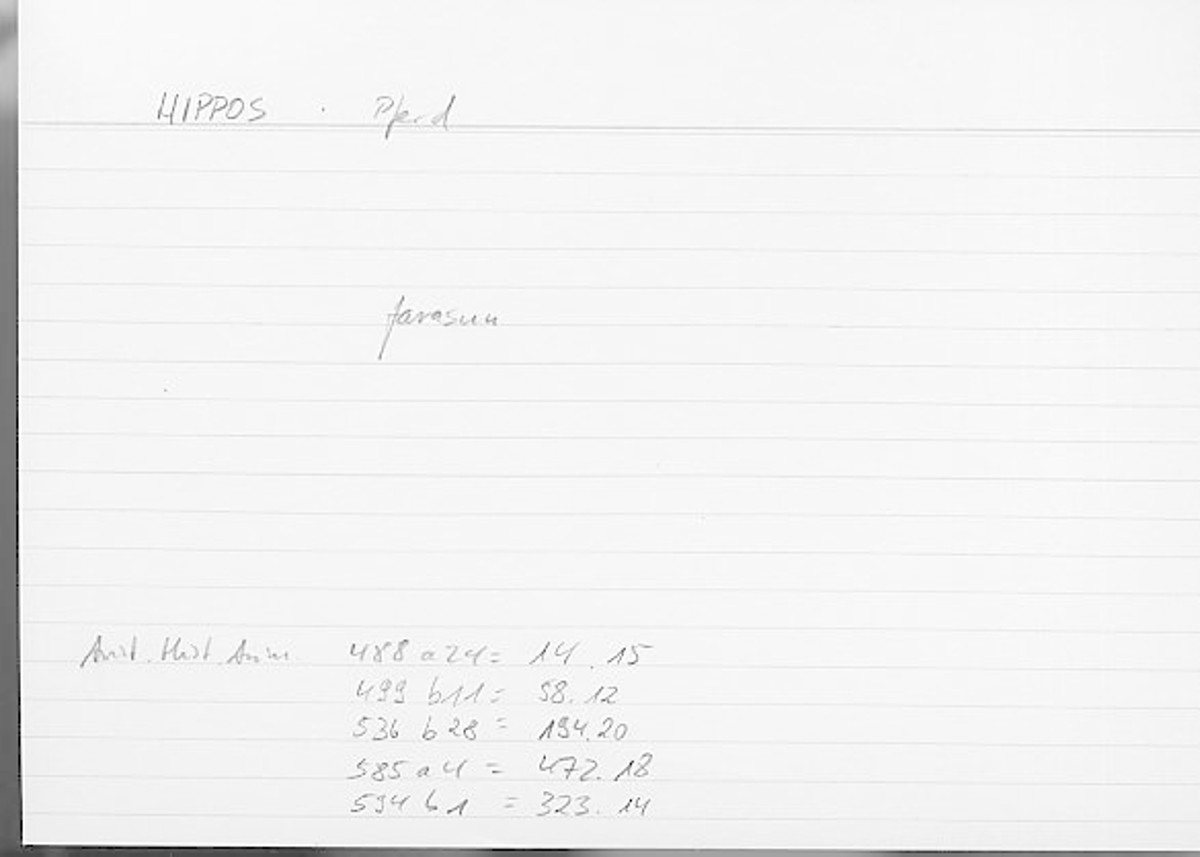 HIPPOS . Pferd
farasun
Arist. Hist. Anim. 488 a 24 = 14.15
499 b 11 = 58.12
536 b 28 = 194.20
585 a 4 = 472.18
594 b 1 = 323.14